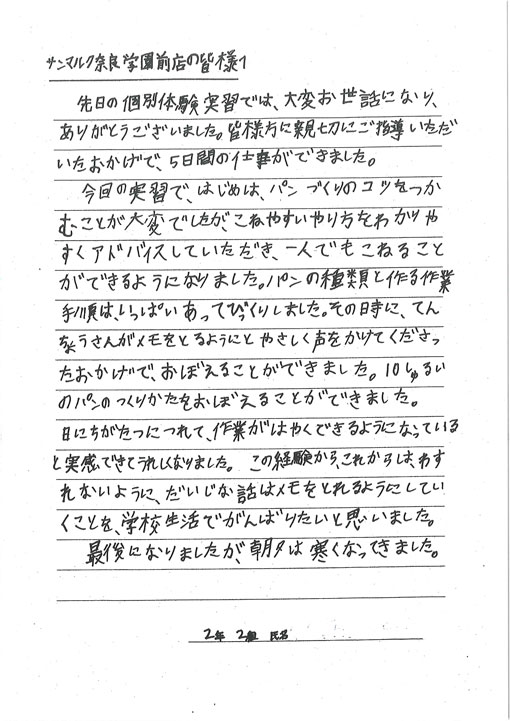 サンマルク奈良学園前店の皆様へ
先日の個別体験実習では、大変お世話になり、
ありがとうございました。皆様方に親切にご指導いただ
いたおかげで、5日間の仕事ができました。
今回の実習で、はじめは、パンづくりのコツをつか
むことが大変でしたが、こねやすいやり方をわかりや
すくアドバイスしていただき、一人でもこねること
ができるようになりました。パンの種類と作る作業
手順は、いっぱいあってびっくりしました。その日時に、てん
ちょうさんがメモをとるようにとやさしく声をかけてくださっ
たおかげで、おぼえることができました。10しゅるい
のパンのつくりかたをおぼえることができました。
日にちがたつにつれて、作業がはやくできるようになっている
と実感できてうれしくなりました。この経験から、これからは、わす
れないように、だいじな話はメモをとれるようにしてい
くことを、学校生活でがんばりたいと思いました。
最後になりましたが、朝夕は寒くなってきました。
2年 2組 氏名